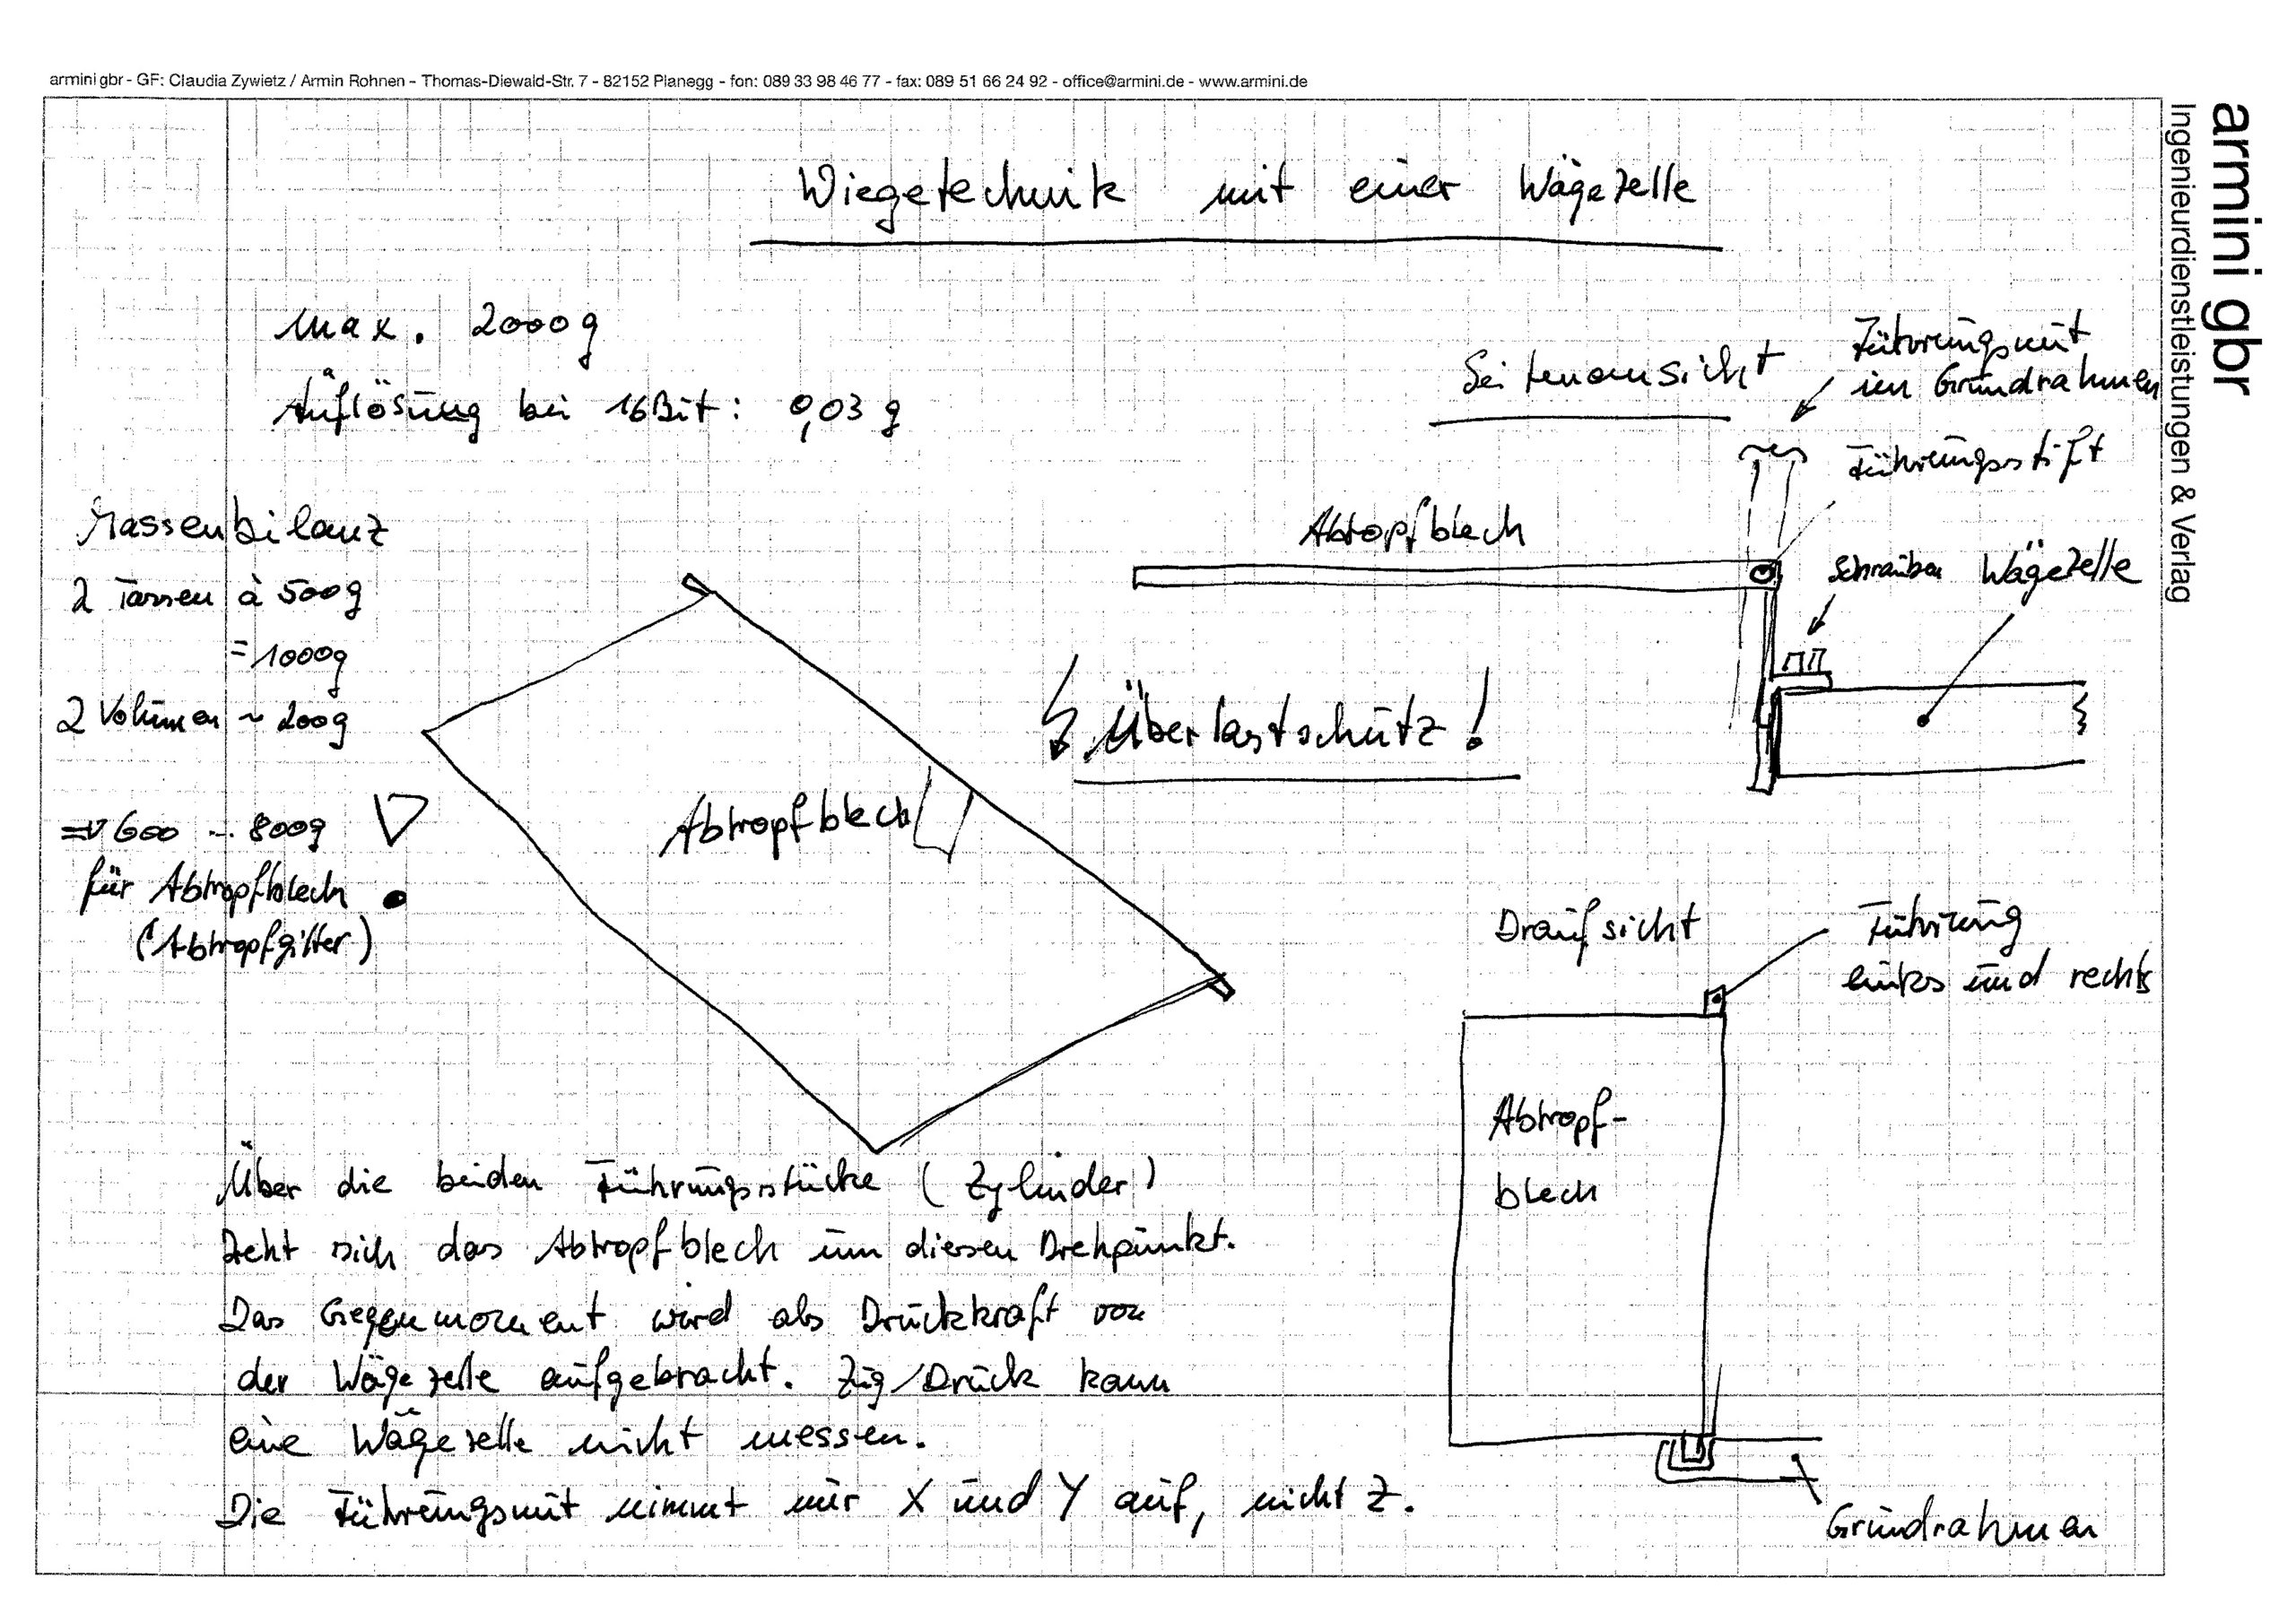 armini gbr - GF: Claudia Zywietz / Armin Rohnen - Thomas-Diewald-Str. 7 - 82152 Planegg - fon: 089 33 98 46 77 - fax: 089 51 66 24 92 - office@armini.de - www.armini.de
armini gbr
Ingenieurdienstleistungen & Verlag
Wiegetechnik mit einer Wägezelle
max. 2000g
Auflösung bei 16Bit: 0,03 g
Massenbilanz
2 Tassen à 500g
= 1000g
2 Volumen ~ 200g
=> 600 - 800g
für Abtropfblech
(Abtropfgitter)
Abtropfblech
Seitenansicht
Führungsnut
im Grundrahmen
Führungsstift
Abtopfblech
Schrauben
Wägezelle
Überlastschutz!
Draufsicht
Führung
links und rechts
Abtropf-
blech
Grundrahmen
Über die beiden Führungsstücke (Zylinder)
Deht sich das Abtropfblech um diesen Drehpunkt.
Das Gegenmoment wird als Druckkraft von
der Wägezelle aufgebracht. Zug/Druck kann
eine Wägezelle nicht messen.
Die Führungsnut nimmt nur X und Y auf, nicht Z.